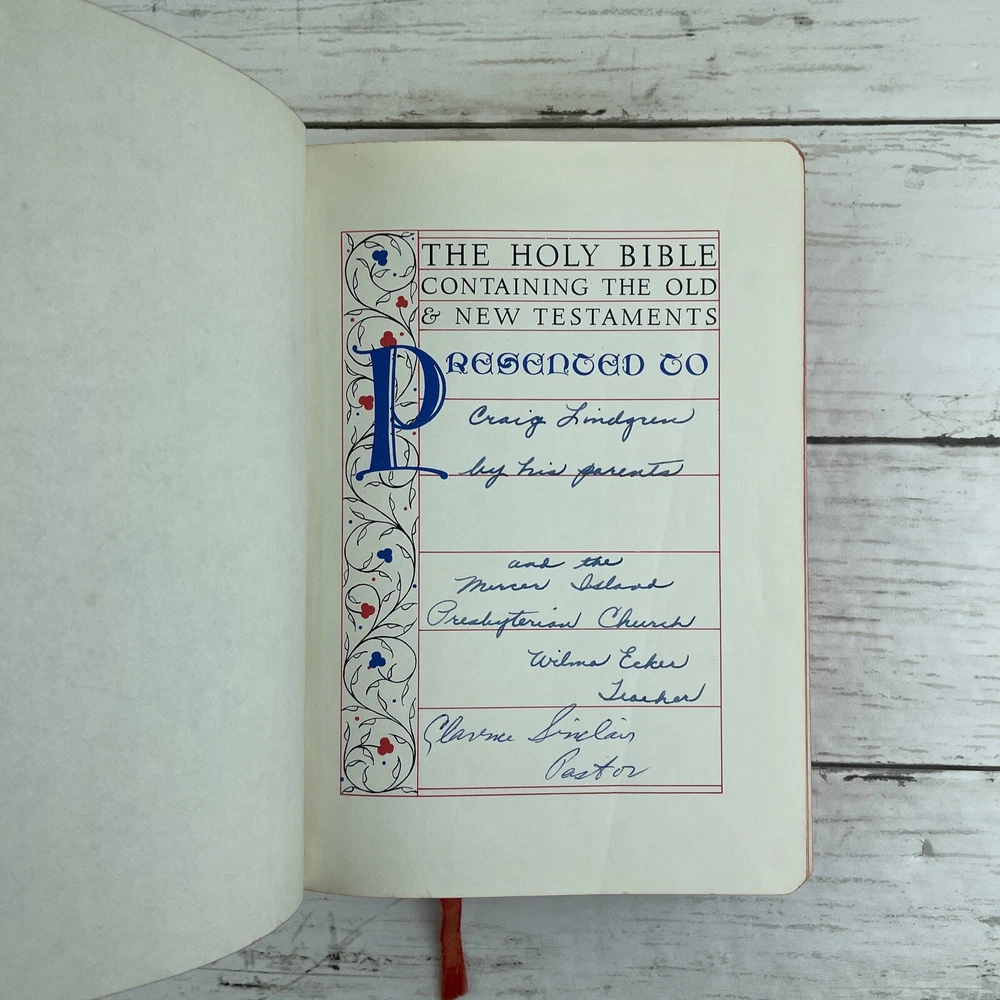 THE HOLY BIBLE
CONTAINING THE OLD
& NEW TESTAMENTS
PRESENTED TO
Craig Lindgren
by his parents
and the
Mercer Island
Presbyterian Church
Wilma Ecker
Teacher
Clarence Sinclair
Pastor